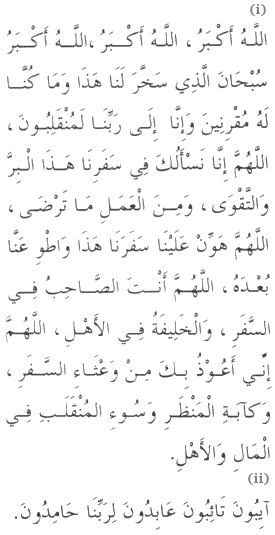 (i)
اللَّهُ أَكْبَرُ ، اللَّهُ أَكْبَرُ ،اللَّهُ أَكْبَرُ
سُبْحَانَ الَّذِي سَخَّرَ لَنَا هَذَا وَمَا كُنَّا
لَهُ مُقْرِنِينَ وَإِنَّا إِلَى رَبِّنَا لَمُنْقَلِبُونَ ،
اللَّهُمَّ إِنَّا نَسْأَلُكَ فِي سَفَرِنَا هَذَا الْبِرَّ
وَالتَّقْوَى ، وَمِنَ الْعَمَلِ مَا تَرْضَى ،
اللَّهُمَّ هَوِّنْ عَلَيْنَا سَفَرَنَا هَذَا وَاطْوِ عَنَّا
بُعْدَهُ ، اللَّهُمَّ أَنْتَ الصَّاحِبُ فِي
السَّفَرِ ، وَالْخَلِيفَةُ فِي الأَهْلِ ، اللَّهُمَّ
إِنِّي أَعُوْذُ بِكَ مِنْ وَعْثَاءِ السَّفَرِ ،
وَكآبَةِ الْمَنْظَرِ وَسُوءِ المُنْقَلَبِ فِي
الْمَالِ وَالأَهْلِ.
(ii)
آيِبُونَ تَائِبُونَ عَابِدُونَ لِرَبِّنَا حَامِدُونَ.